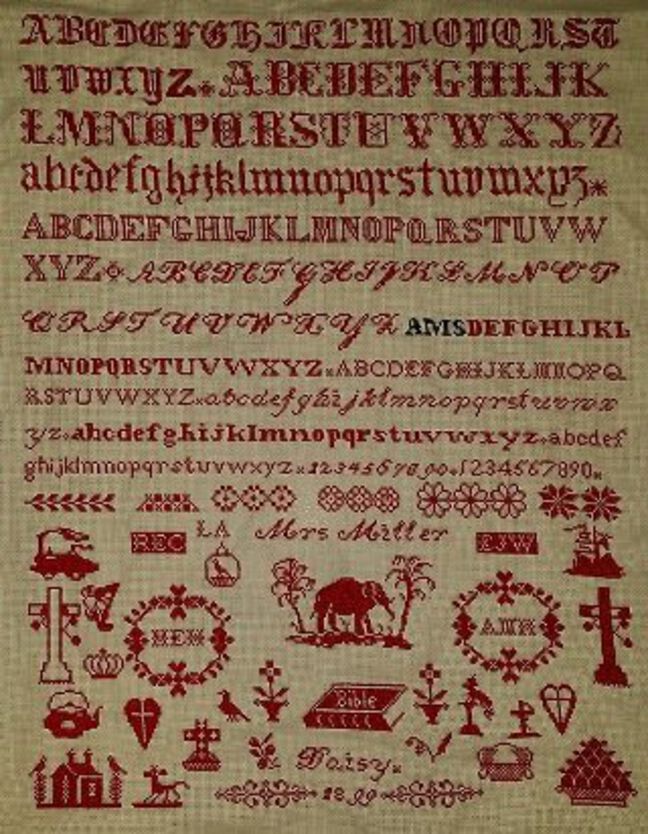 ABCDEFGHIJKLMNOPQRST
UVWXYZ*ABCDEFGHIJK
LMNOPQRSTUVWXYZ
abcdefghijklmnopqrstuvwxyz*
ABCDEFGHIJKLMNOPQRSTUVW
XYZ*ABCDEFGHIJKLMNOP
QRSTUVWXYZ AMSDEFGHIJKL
MNOPQRSTUVWXYZ*ABCDEFGHIJKLMNOPQ
RSTUVWXYZ*abcdefghijklmnopqrstuvwx
yz*abcdefghijklmnopqrstuvwxyz*abcdef
ghijklmnopqrstuvwxyz*1234567890*1234567890*
REC LA Mrs Miller EJW
HEH AMH
Bible
Daisy
1899